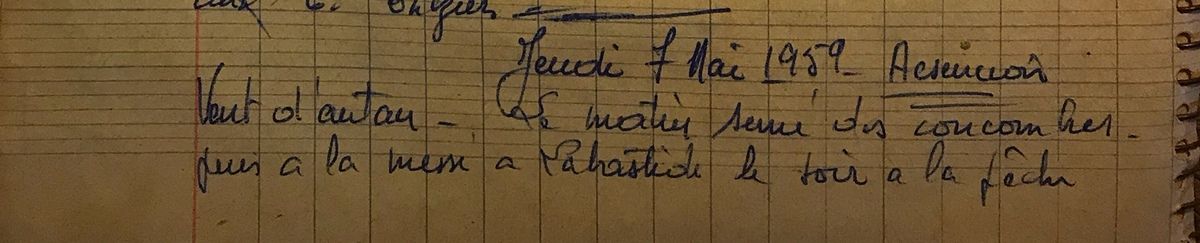 Jeudi 7 Mai 1959 - Ascension
Vent d'autan - Le matin semé des concombres -
puis a la messe a Labastide le soir a la pêche